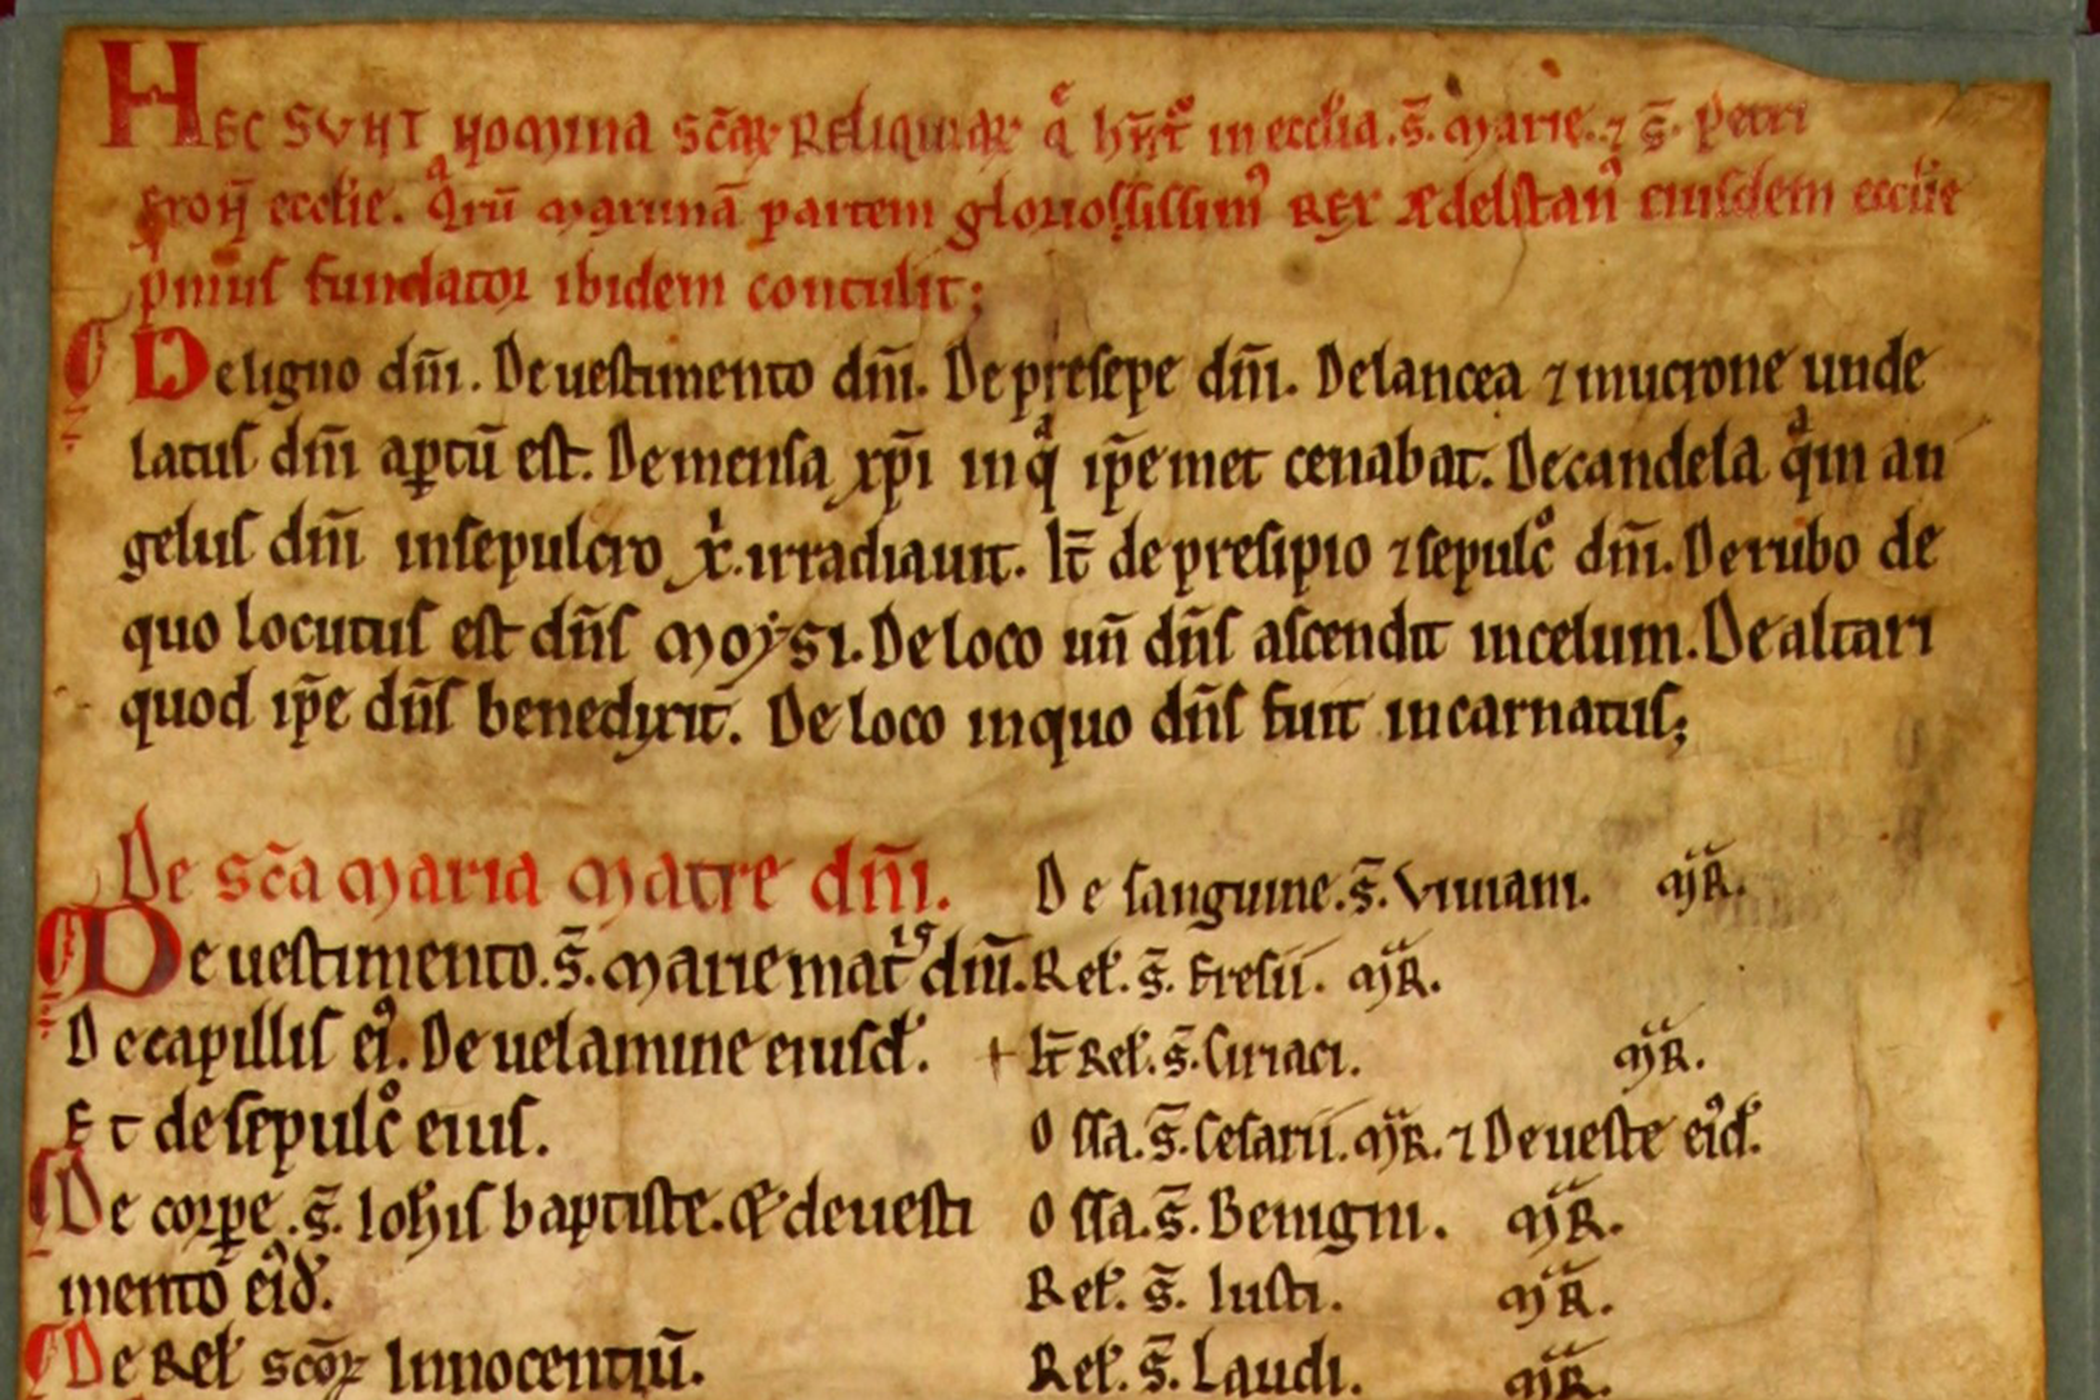 HEC SVNT Nomina sc̄aꝝ Reliquiaꝝ qͤ hn̄tʳ in eccl̓ia .s̄. Marie. ⁊ s̄. Petri
exoñ eccl̓ie. Qͣrū Maximā partem gloriosſiſſim᷒ REX Ædelſtan᷒ eiuſdem eccl̓ie
p̓miuſ fundatoꝛ ibidem contulit;
De ligno dn̄i. De ueſtimento dn̄i. De preſepe dn̄i. De lancea ⁊ mucrone unde
latuſ dn̄i aꝑtū eſt. De menſa xp̄i in qͣ ip̄emet cenabat. De candela qͣm an
geluſ dn̄i in ſepulcro x̓. irradiauit. It̄ de preſipio ⁊ ſepulcͦ dn̄i. De rubo de
quo locutuſ eſt dn̄ſ Moẏsi. De loco un̄ dn̄ſ aſcendit in celum. De altari
quod ip̄e dn̄ſ benedyxit. De loco in quo dn̄ſ fuit incarnatuſ;
De sc̄a Maria Matre dn̄i.
De ueſtimento .s̄. Marie matͥᷤ dn̄i.
De capilliſ ei᷒. De uelamine eiuſd̓.
Et de ſepulcͦ eiuſ.
De coꝛꝑe .s̄. Ioh̓iſ baptiſte. & de ueſti
mento ei᷒d̓.
De Rel̓ scōꝝ Innocentiū.
De ſanguine .s̄. Viuiani. MR̃.
Rel̓. s̄. Freſii. MR̃.
+ It̄ Rel̓. s̄. Ciriaci. MR̃.
Oſſa .s̄. Ceſarii. MR̃. ⁊ De ueſte ei᷒d̓.
Oſſa .s̄. Benigni. MR̃.
Rel̓. s̄. Iuſti. MR̃.
Rel̓. s̄. Laudi. MR̃.